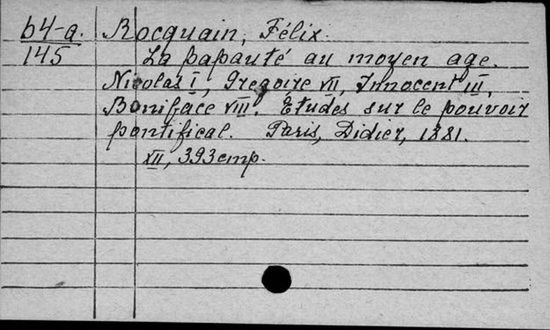 64-a.
145
Rocquain, Félix.
La papauté au moyen age.
Nicolas I, Gregoire VII, Innocent III,
Boniface VIII. Études sur le pouvoir
pontifical. Paris, Didier, 1881.
XII, 393 cmp.